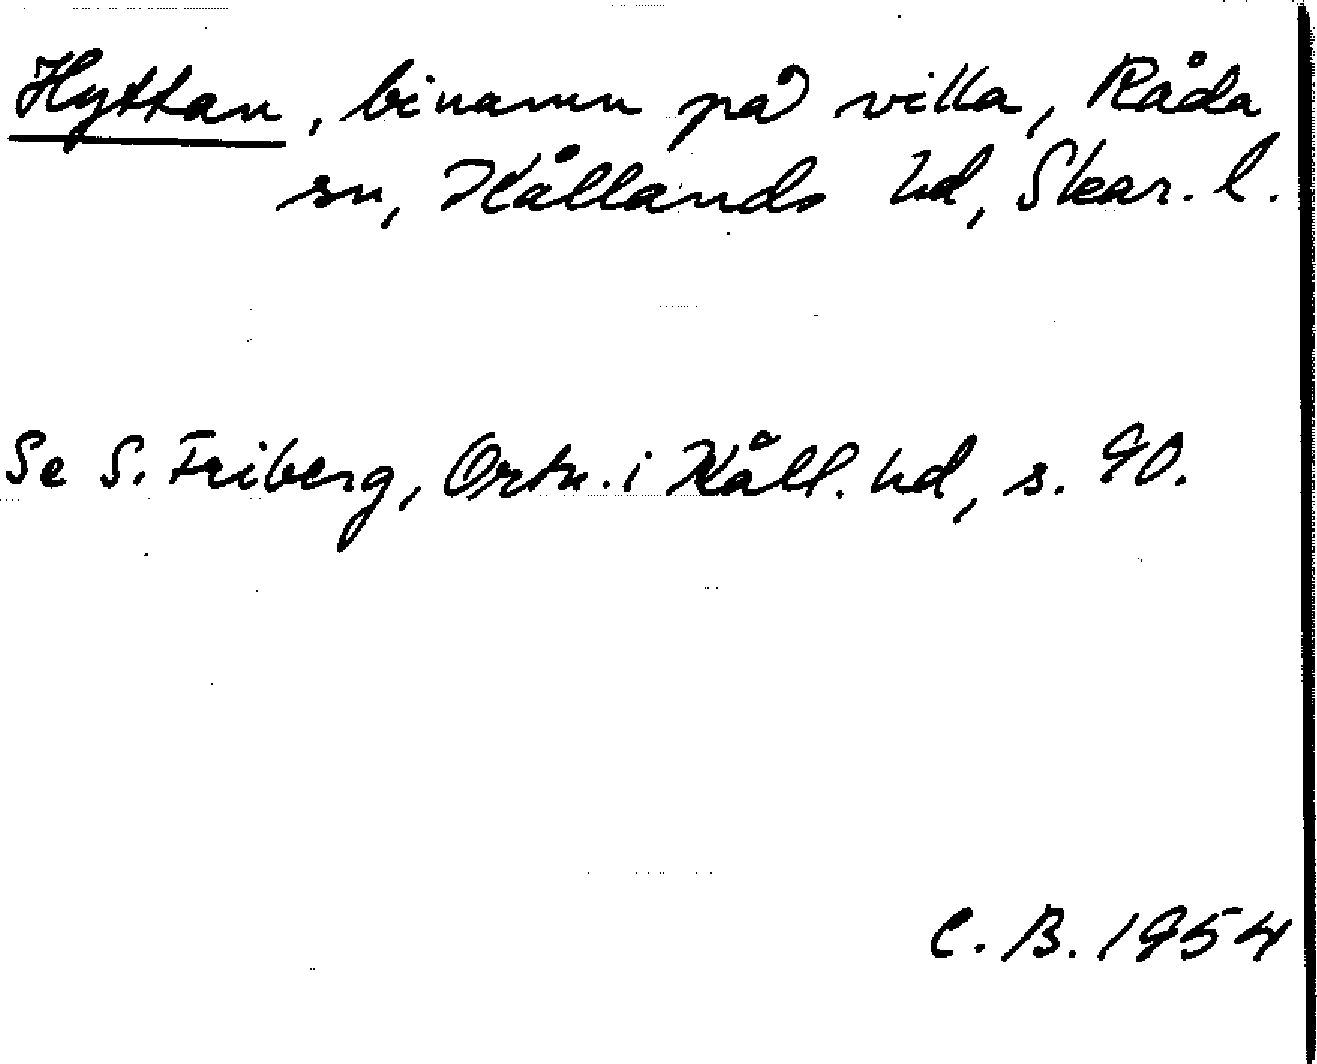 Hyttan, binamn på villa, Råda
sn, Kållands hd, Skar. l.
Se S. Friberg, Ortn. i Kåll. hd, s. 90.
C. B. 1954